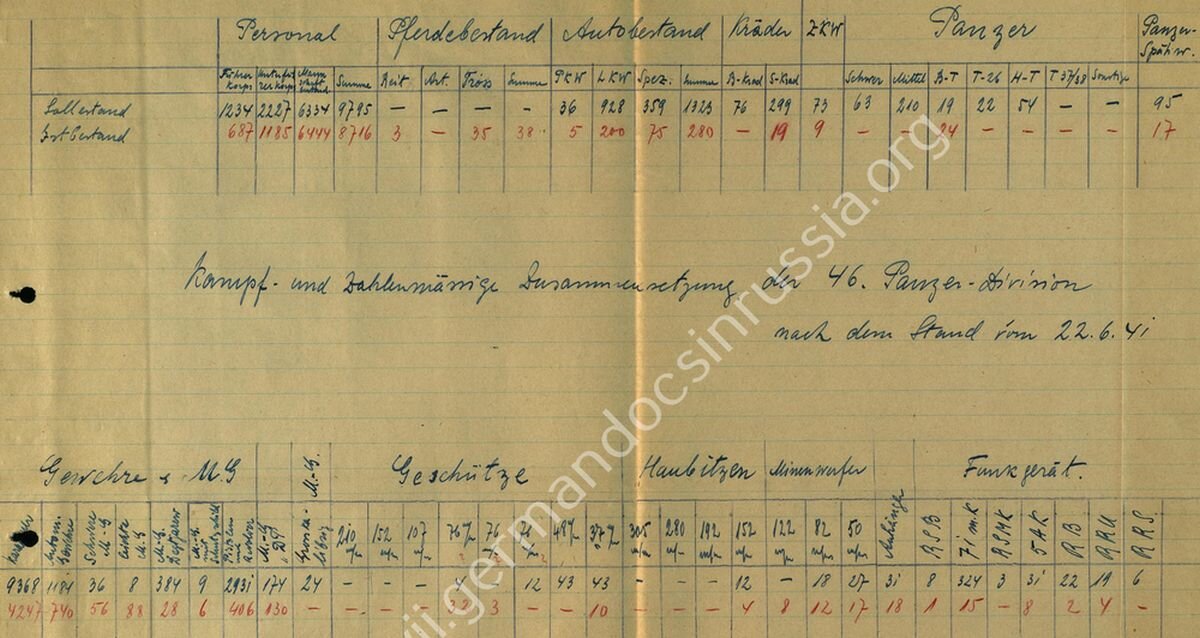 Personal Pferdebestand Autobestand Kräder ZKW Panzer Panzer-Spähw.
Führer korps Unterfüh rerkorps Mann schaft Summe Reit Art. Tross Summe PKW LKW Spez. Summe B-Krad S-Krad Schwer Mittel B-T T-26 H-T T 37/38 Sonstige
Sollbestand 1234 2227 6334 9795 — — — — 36 928 359 1323 76 299 73 63 210 19 22 54 — — 95
Istbestand 687 1185 6444 8716 3 — 35 38 5 200 75 280 — 19 9 — — 24 — — — — 17
Kampf- und Zahlenmässige Zusammensetzung der 46. Panzer-Division
nach dem Stand vom 22.6.41
Gewehre u. M.G M.-G. Geschütze Haubitzen Minenwerfer Funkgerät.
Autom. Gewehre Schwere M-G Leichte M-G M.-G. Degtjarew M.-G. M.-G. "DP" 210 m/m 152 m/m 107 m/m 76 m/m 76 m/m 76 m/m 45 m/m 37 m/m 305 m/m 280 m/m 192 m/m 152 m/m 122 m/m 82 m/m 50 m/m Anhänger RSB RSMK 5AK RB RRU RRS.
9368 1184 36 8 384 9 2931 174 24 — — — — 12 43 43 — — — 12 — 18 27 31 8 324 3 31 22 19 6
4247 740 56 88 28 6 406 130 — — — — 32 3 — — 10 — — — 4 8 12 17 18 1 15 — 8 2 4 —
wii.germandocsinrussia.org